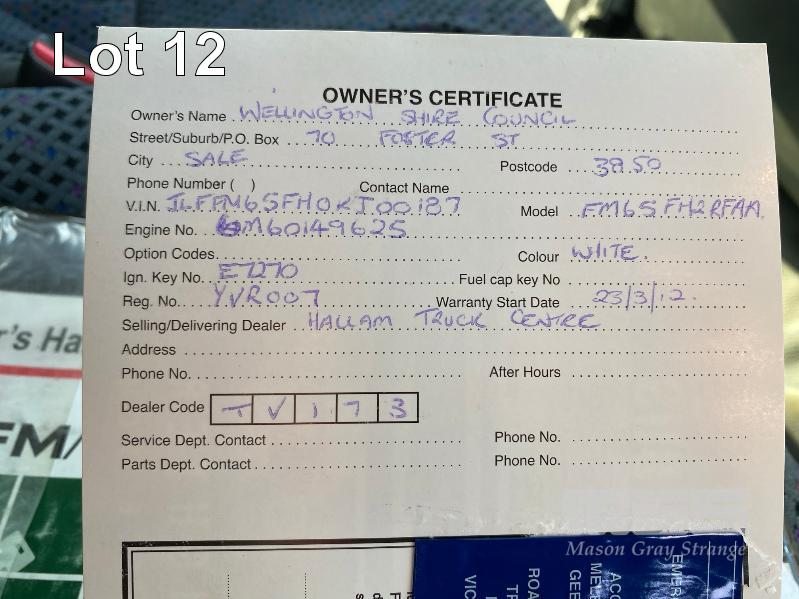 Lot 12
OWNER'S CERTIFICATE
Owner's Name WELLINGTON SHIRE COUNCIL
Street/Suburb/P.O. Box 70 FOSTER ST
City SALE Postcode 3850
Phone Number ( ) Contact Name
V.I.N. JLFFM65FH0KJ00187 Model FM65FH2RFAA
Engine No. 6M60149625
Option Codes Colour WHITE.
Ign. Key No. E7270 Fuel cap key No
Reg. No. YVR007 Warranty Start Date 23/3/12.
Selling/Delivering Dealer HALLAM TRUCK CENTRE
Address
Phone No. After Hours
Dealer Code T V 1 7 3
Service Dept. Contact Phone No.
Parts Dept. Contact Phone No.
r's Ha
FM/
Mason Gray Strange
VIC
ROA
GEE
MEL
ACC
EMER